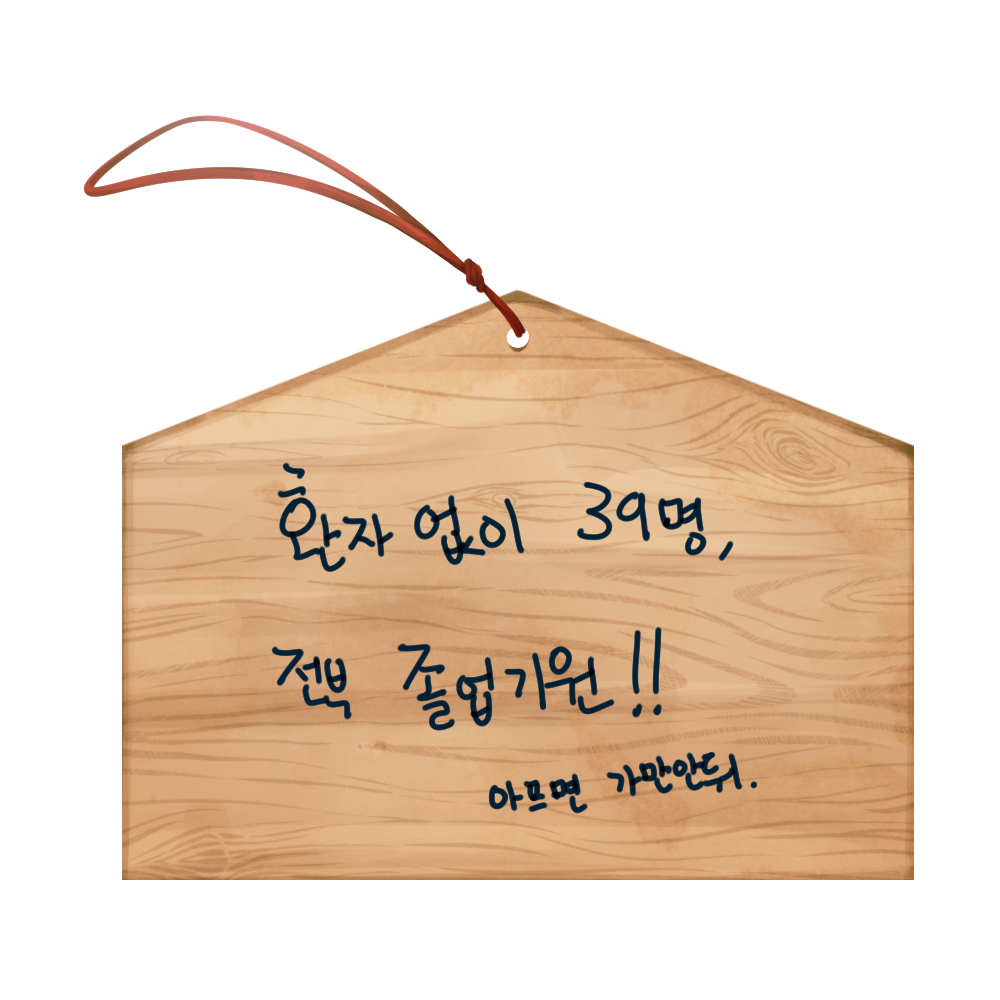 환자 없이 39명,
전부 졸업기원!!
아프면 가만안둬.